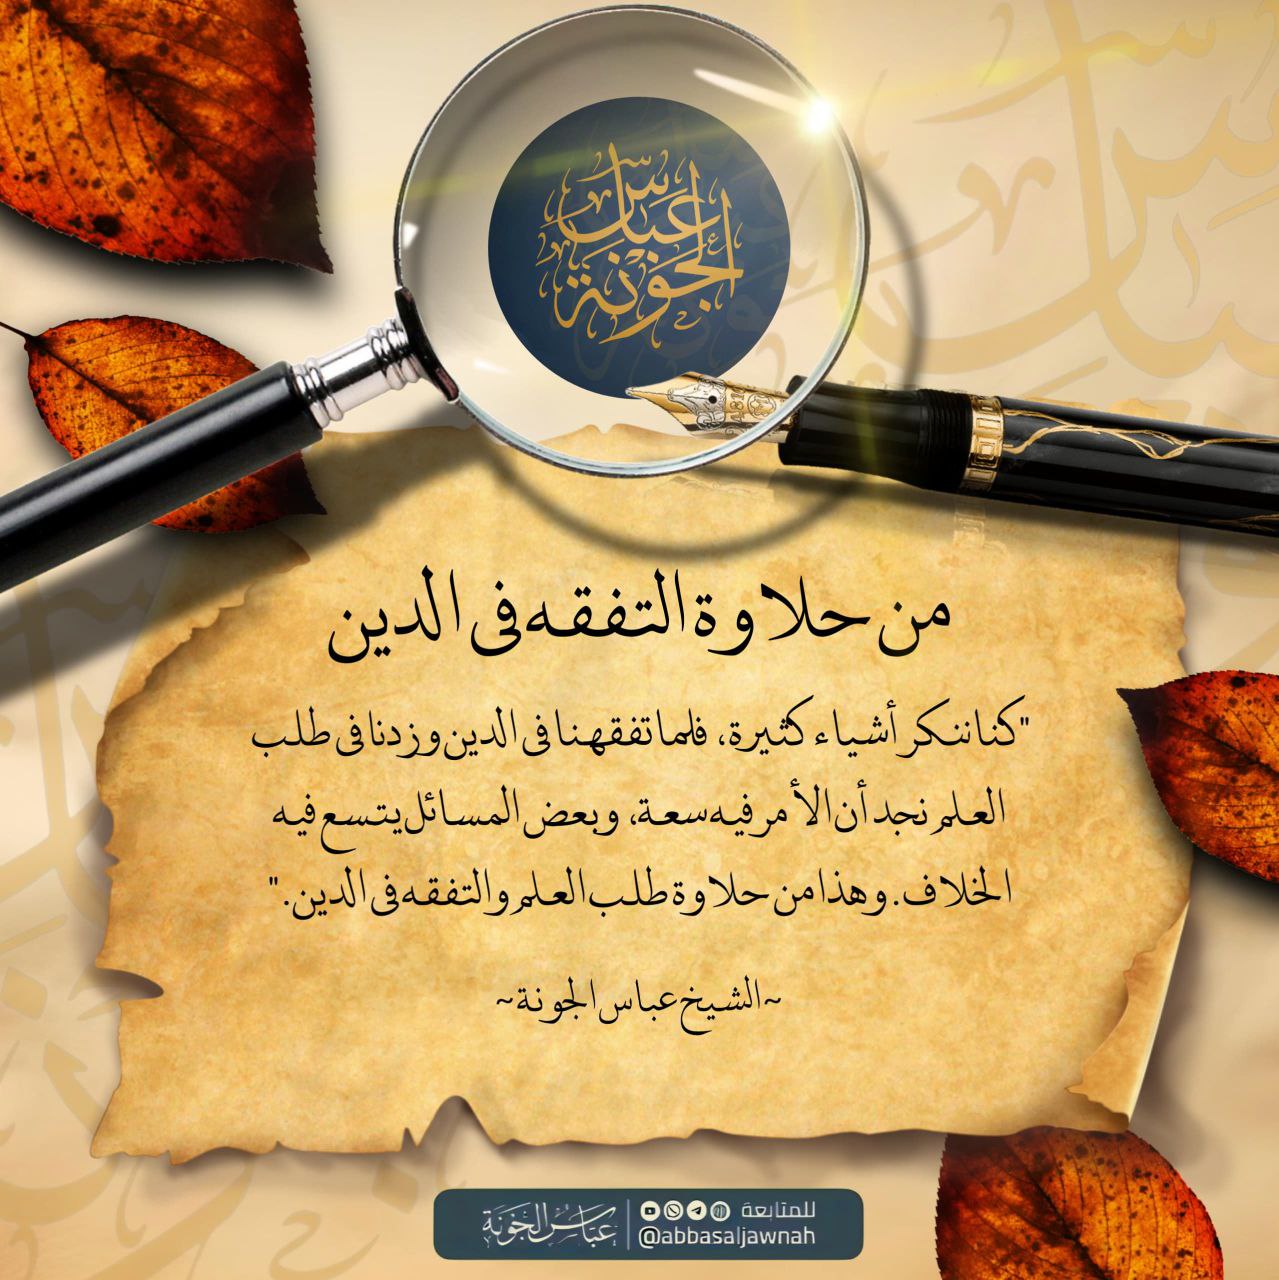 عباس الجونة
من حلاوة التفقه في الدين
"كنا ننكر أشياء كثيرة، فلما تفقهنا في الدين وزدنا في طلب
العلم نجد أن الأمر فيه سعة، وبعض المسائل يتسع فيه
الخلاف. وهذا من حلاوة طلب العلم والتفقه في الدين."
~الشيخ عباس الجونة~
للمتابعة
عباس الجونة
@abbasaljawnah